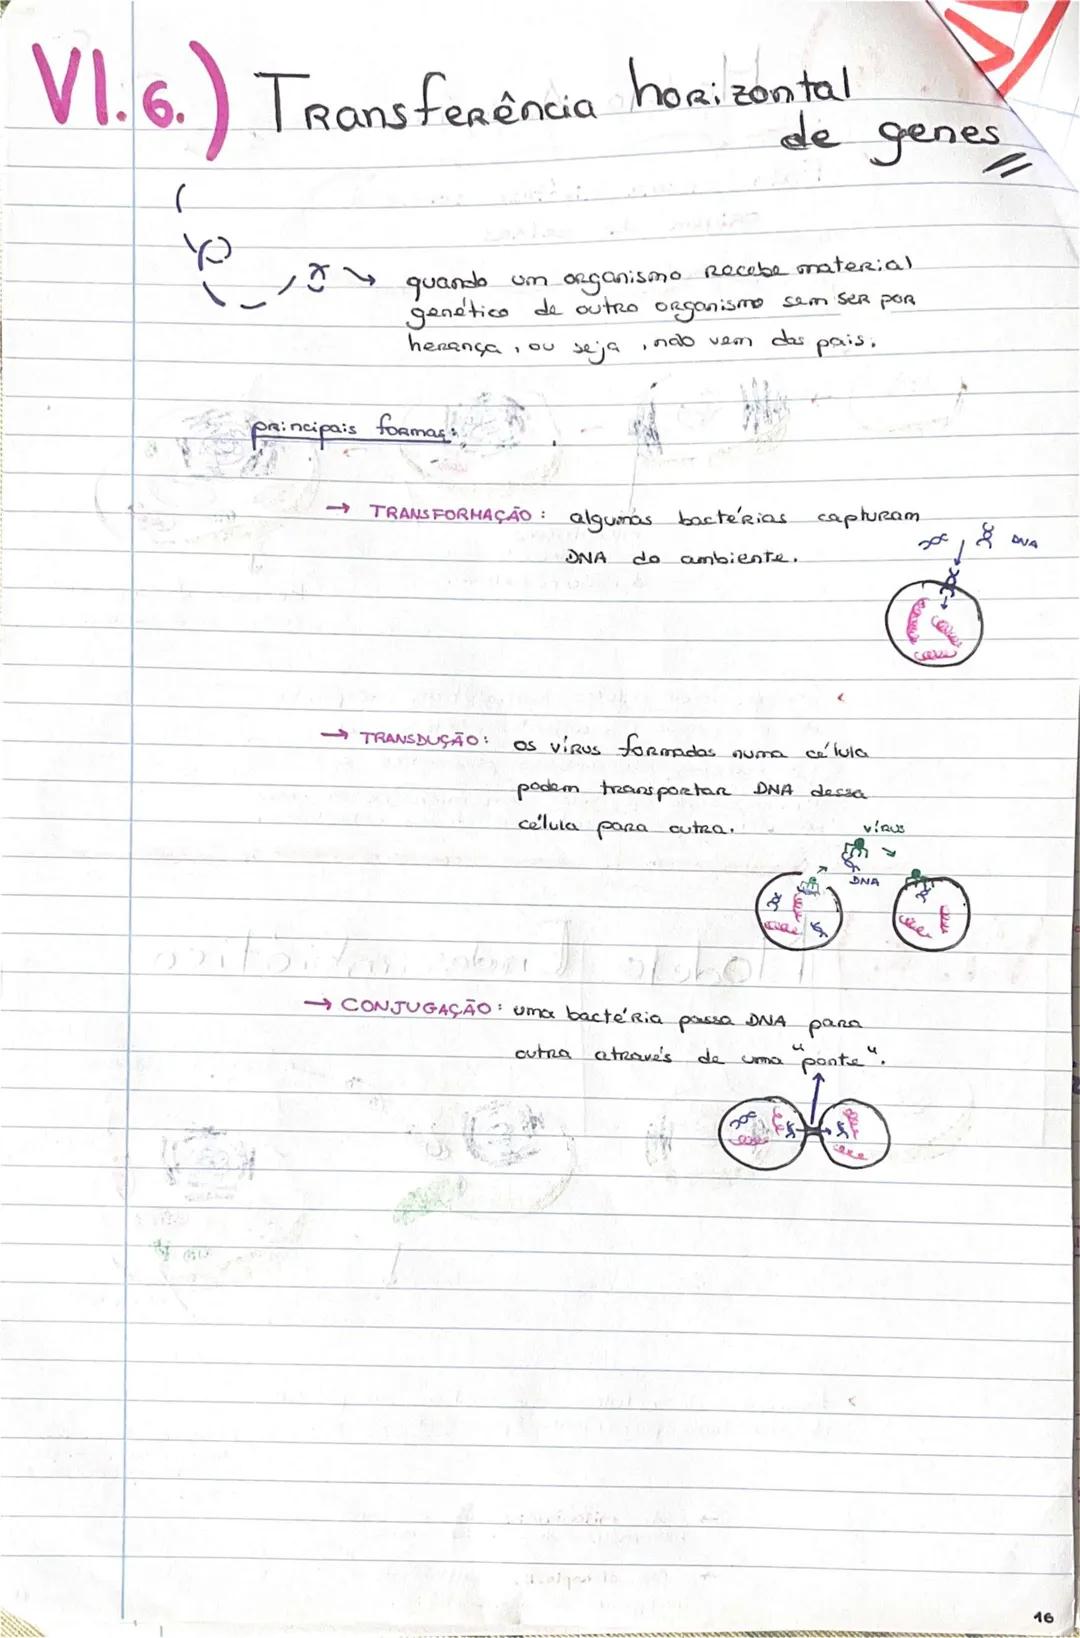 VI.6.) Transferência horizontal
de genes
quando um organismo recebe material
genético de outro organismo sem ser por
herança, ou seja, não vem dos pais.
principais formas:
→ TRANSFORMAÇÃO: algumas bactérias capturam
DNA do ambiente.
DNA
→ TRANSDUÇÃO: os vírus formados numa célula
podem transportar DNA dessa
célula para outra.
vírus
DNA
→ CONJUGAÇÃO: uma bactéria passa DNA para
outra através de uma "ponte".
16